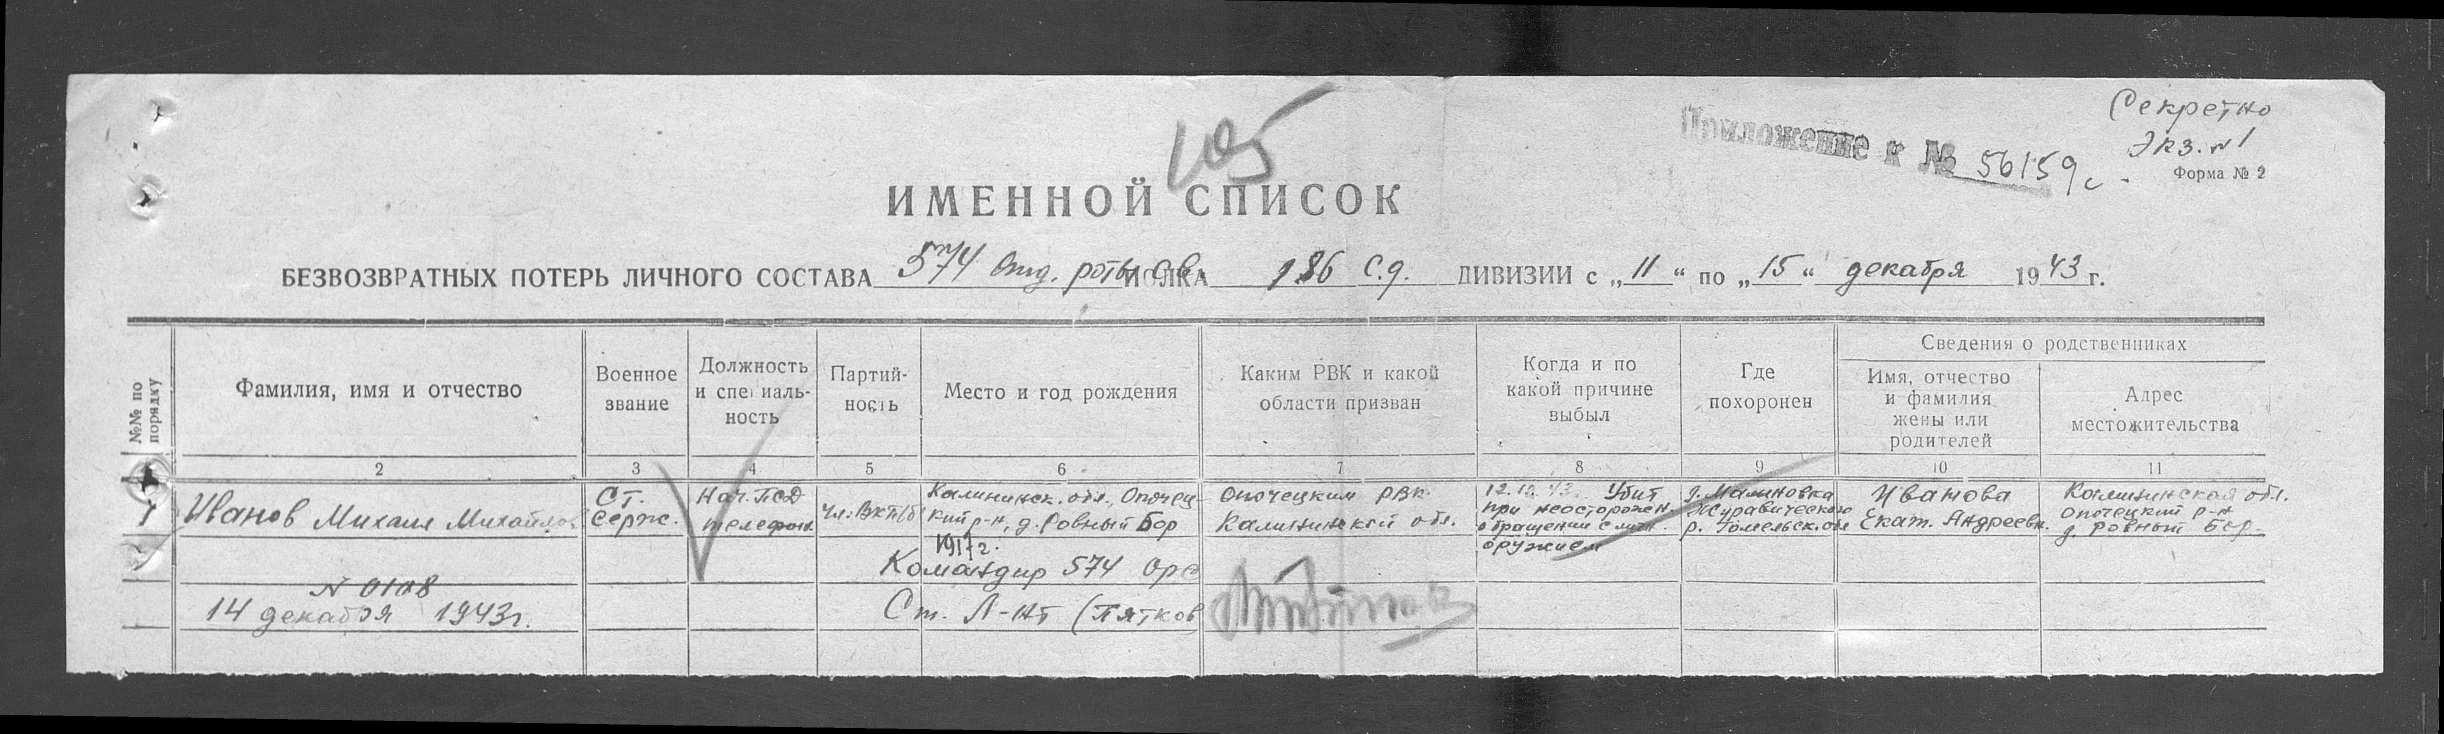 Секретно
Экз. №1
Форма № 2
Приложение к № 56159с.
105
ИМЕННОЙ СПИСОК
БЕЗВОЗВРАТНЫХ ПОТЕРЬ ЛИЧНОГО СОСТАВА 574 отд. роты связи ПОЛКА 186 с.д. ДИВИЗИИ с „11“ по „15“ декабря 1943 г.
№№ по
порядку
Фамилия, имя и отчество
Военное
звание
Должность
и специаль-
ность
Партий-
ность
Место и год рождения
Каким РВК и какой
области призван
Когда и по
какой причине
выбыл
Где
похоронен
Сведения о родственниках
Имя, отчество
и фамилия
жены или
родителей
Адрес
местожительства
1 2 3 4 5 6 7 8 9 10 11
1
Иванов Михаил Михайлов
Ст.
Серж.
Нач. ПСД
телефон.
Чл. ВКП(б)
Калининск. обл., Опочец-
кий р-н, д. Ровный Бор
1917г.
Опочецким РВК
Калининской обл.
12.12.43. Убит
при неосторожн.
обращении с личн.
оружием
д. Малиновка
Журавического
р. Гомельск. обл
Иванова
Екат. Андреевн.
Калининская обл.
Опочецкий р-н
д. Ровный Бор.
Командир 574 орс
Ст. Л-нт (Пятков
N 0108
14 декабря 1943г.